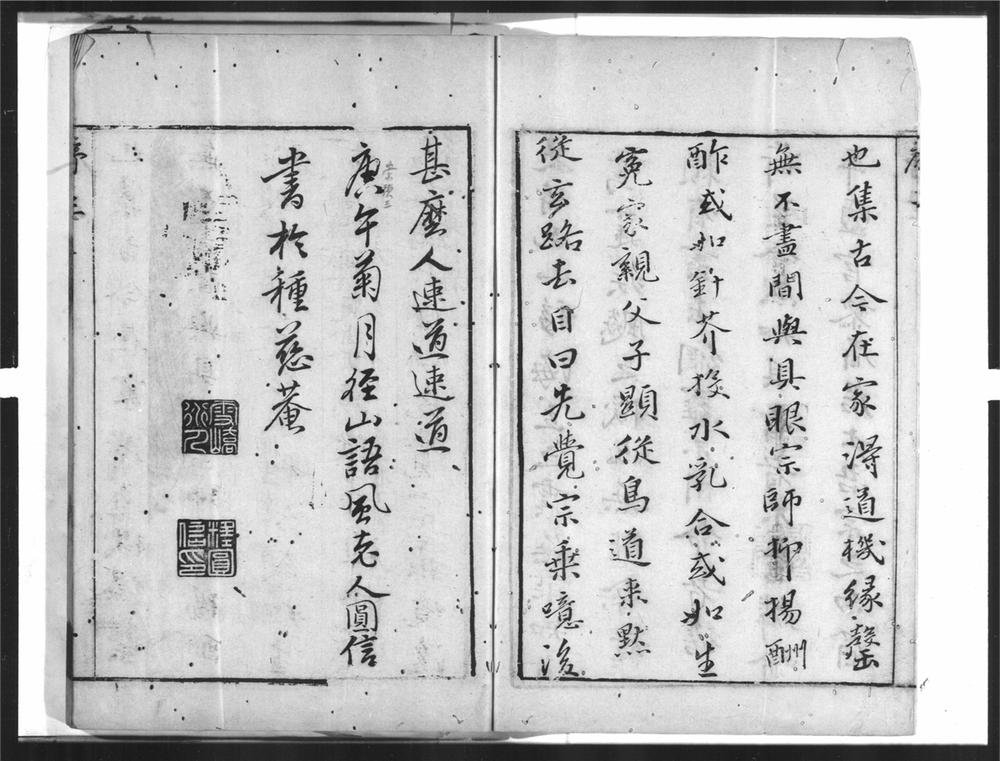 也集古今在家得道機緣罄
無不盡間與具眼宗師抑揚酬
酢或如針芥投水乳合或如生
冤家親父子顯從鳥道來默
從玄路去目曰先覺宗乘噫後
甚麼人速道速道
庚午菊月徑山語風老人圓信
崇禎三
書於種慈菴
雪嶠
序三